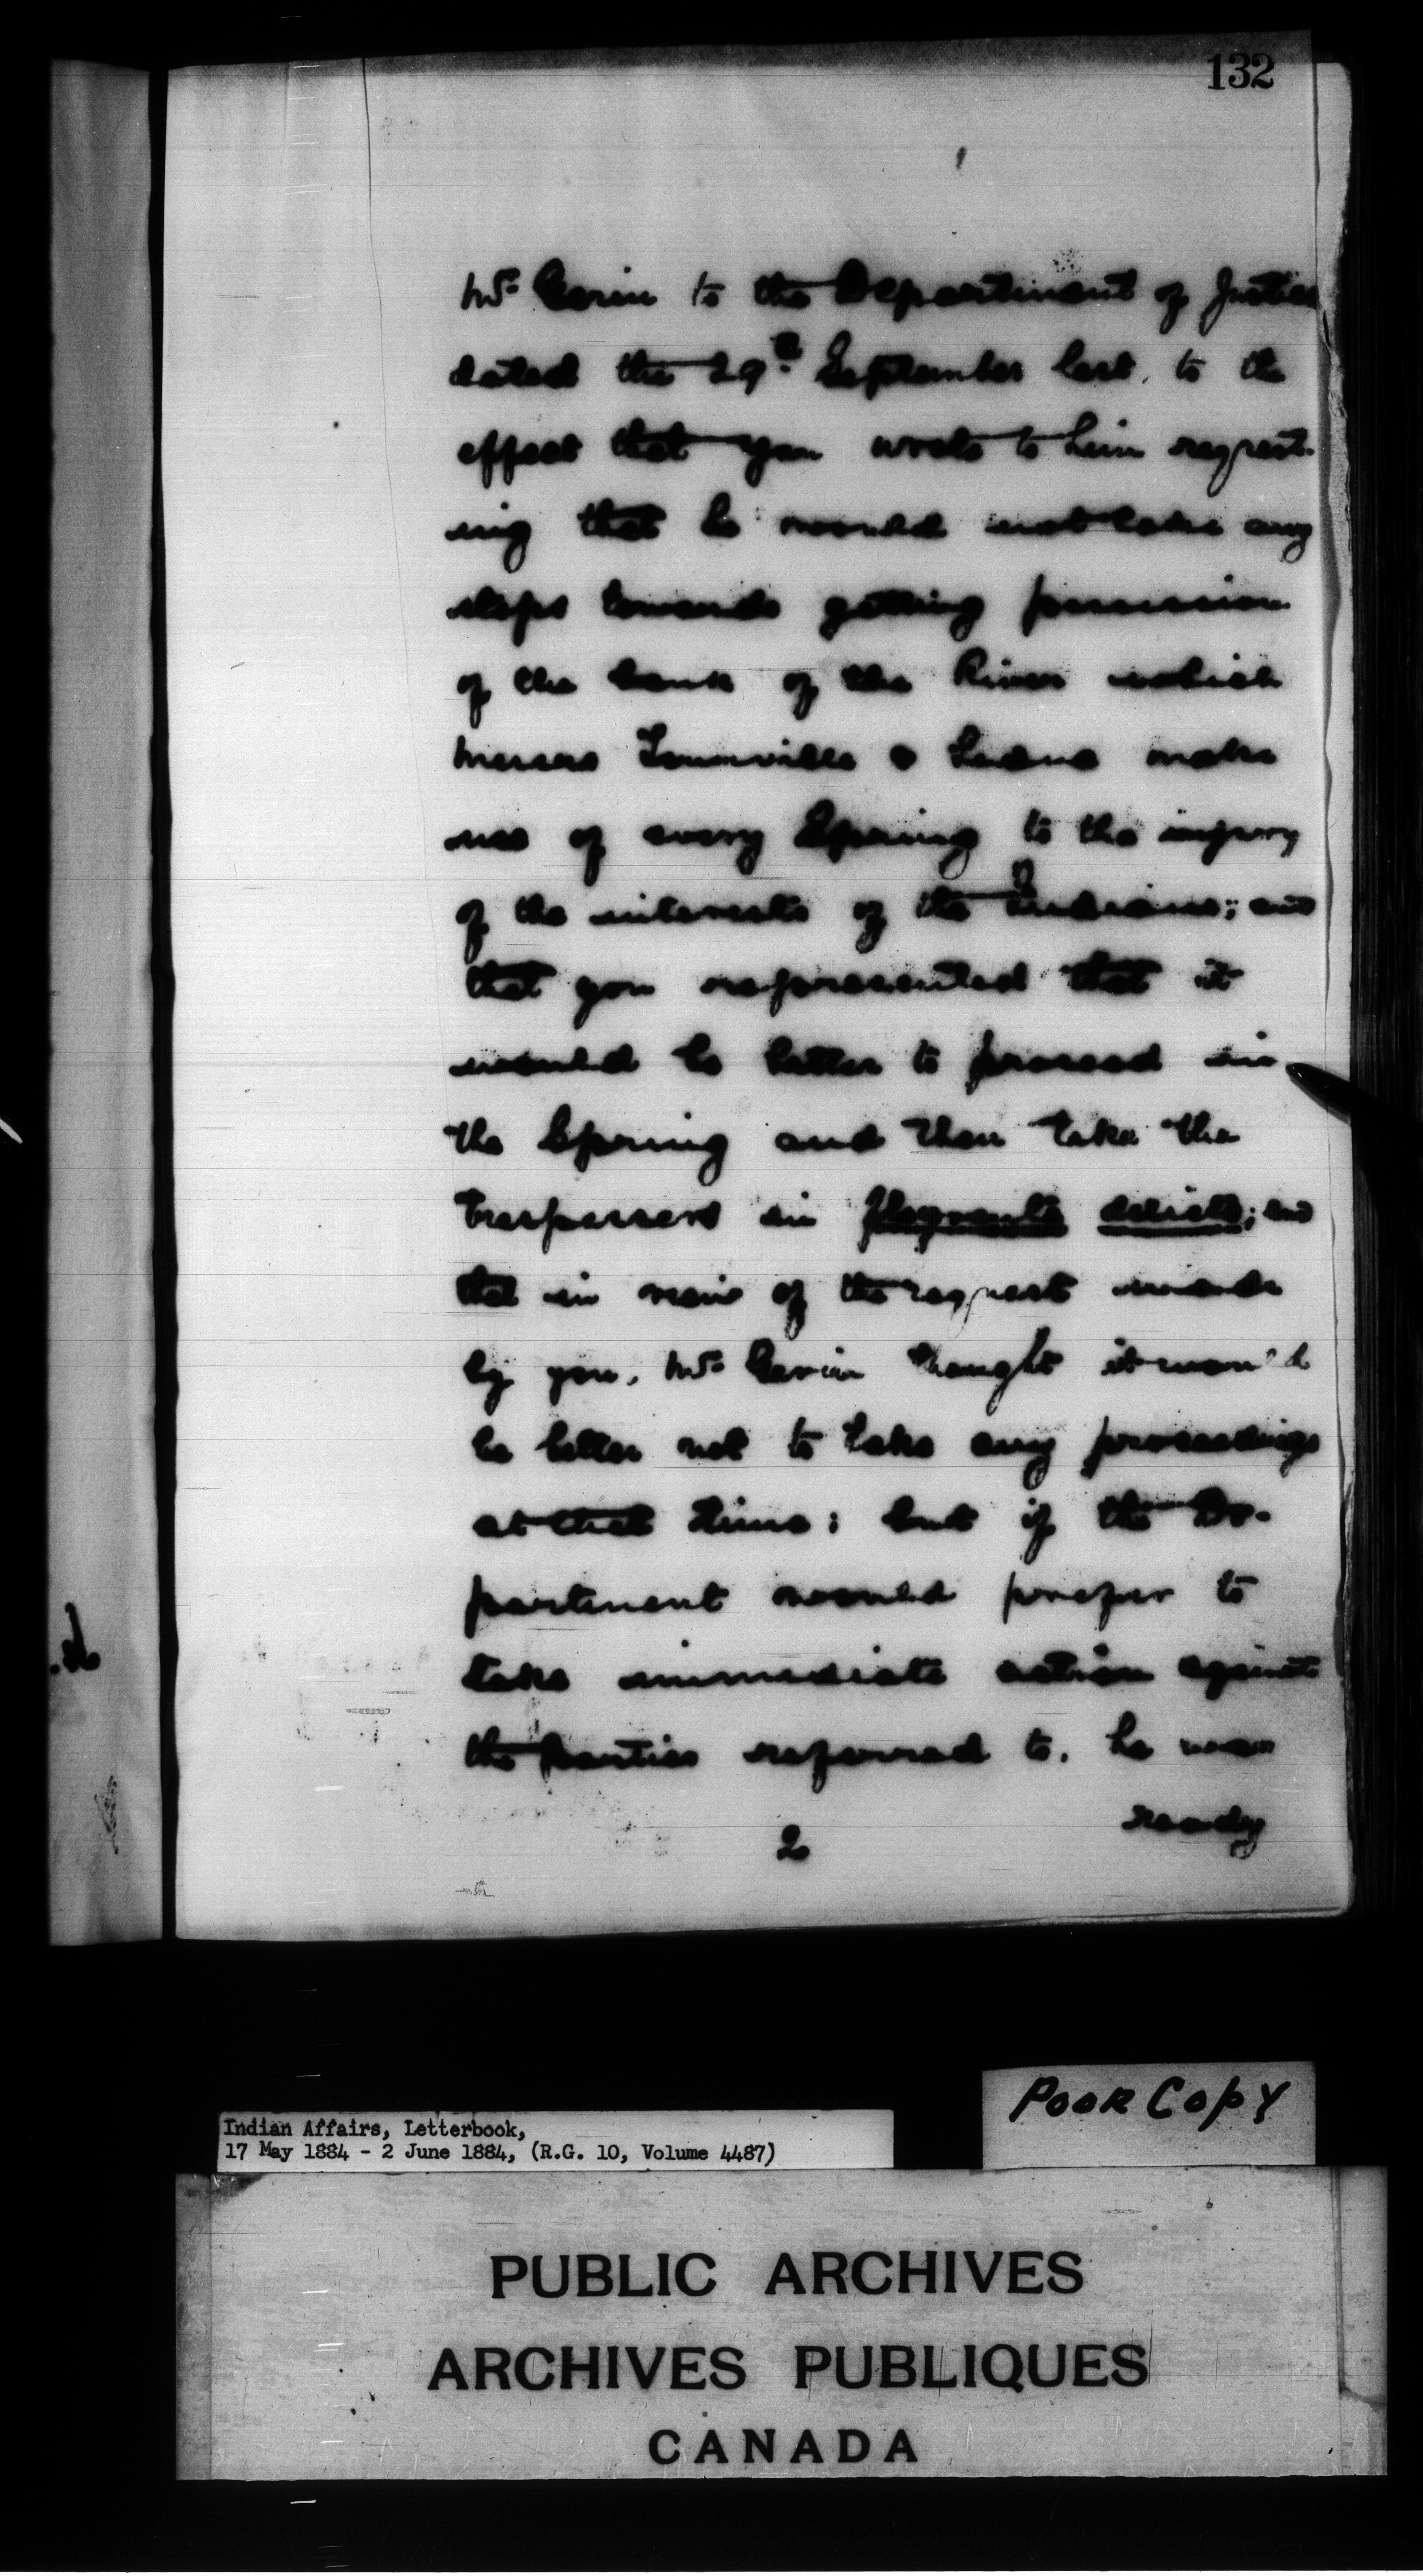 132
Mr. Gerin to the Department of Justice
dated the 29th September last, to the
effect that you wrote to him request-
ing that he would not take any
steps towards getting possession
of the bank of the River which
Messrs Tourville & Leduc make
use of every Spring to the injury
of the interests of the Indians; and
that you represented that it
would be better to proceed in
the Spring and then take the
trespassers in flagrante delicto; and
that in view of the request made
by you, Mr. Gerin thought it would
be better not to take any proceedings
at that time; but if the De-
partment would prefer to
take immediate action against
the parties referred to, he was
ready
2
Poor Copy
Indian Affairs, Letterbook,
17 May 1884 - 2 June 1884, (R.G. 10, Volume 4487)
PUBLIC ARCHIVES
ARCHIVES PUBLIQUES
CANADA